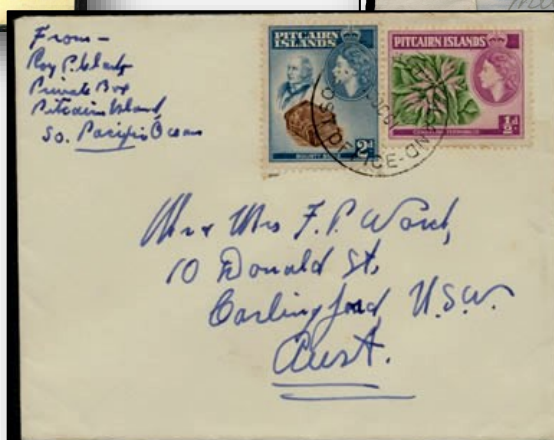 From –
Roy P. Clark
Private Box
Pitcairn Island,
So. Pacific Ocean
PITCAIRN
ISLANDS
BOUNTY
2d
PITCAIRN ISLANDS
½d
POST OFFICE
Mr & Mrs F. P. Ward,
10 Donald St,
Carlingford N.S.W.
Aust.